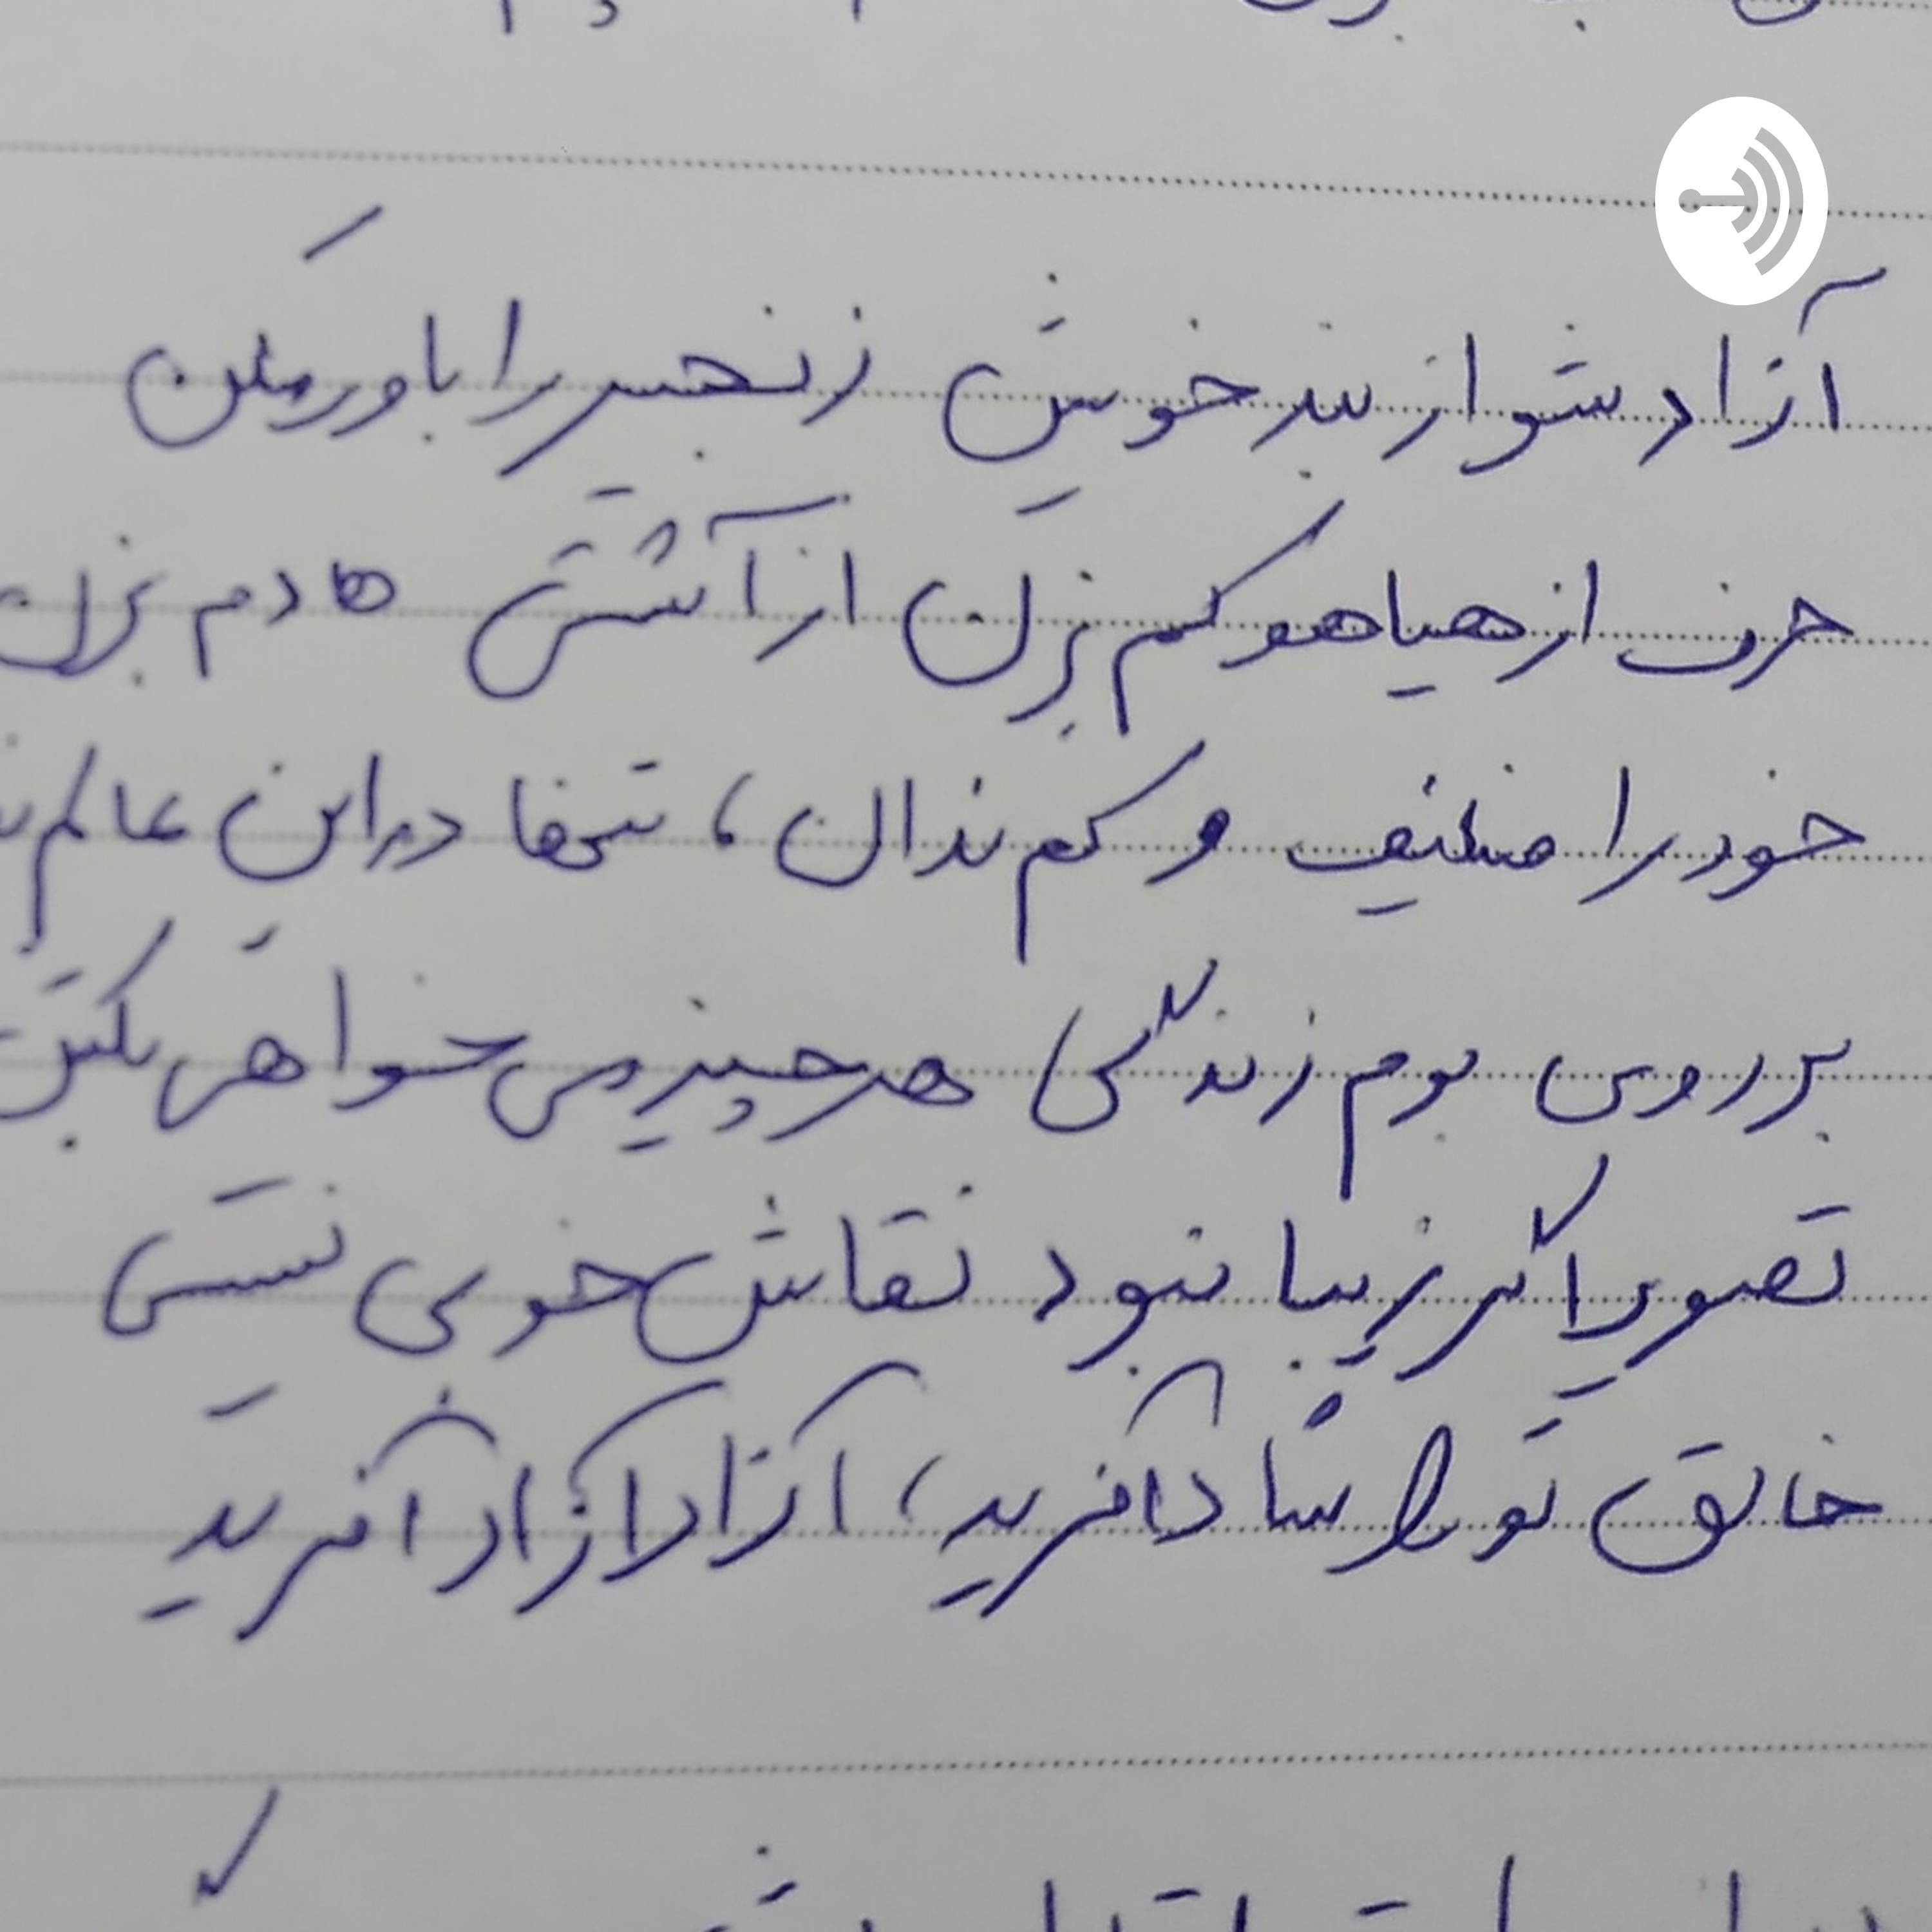 آزاد شو از بند خویش زنجیر را باور مکن
حرف از هیاهو کم بزن از آشتی ها دم بزن
خود را ضعیف و کم ندان، تنها در این عالم
بر روی بوم زندگی هر چیز می خواهی بکش
تصویر اگر زیبا نبود نقاش خوبی نیستی
خالق تو را شاد آفرید، آزاد آزاد آفرید